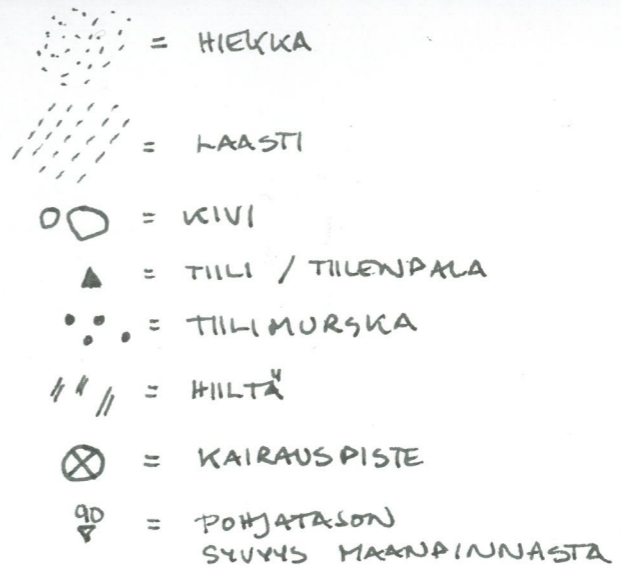 = HIEKKA
= LAASTI
= KIVI
= TIILI / TIILENPALA
= TIILIMURSKA
= HIILTÄ
= KAIRAUSPISTE
90 = POHJATASON
SYVYYS MAANPINNASTA